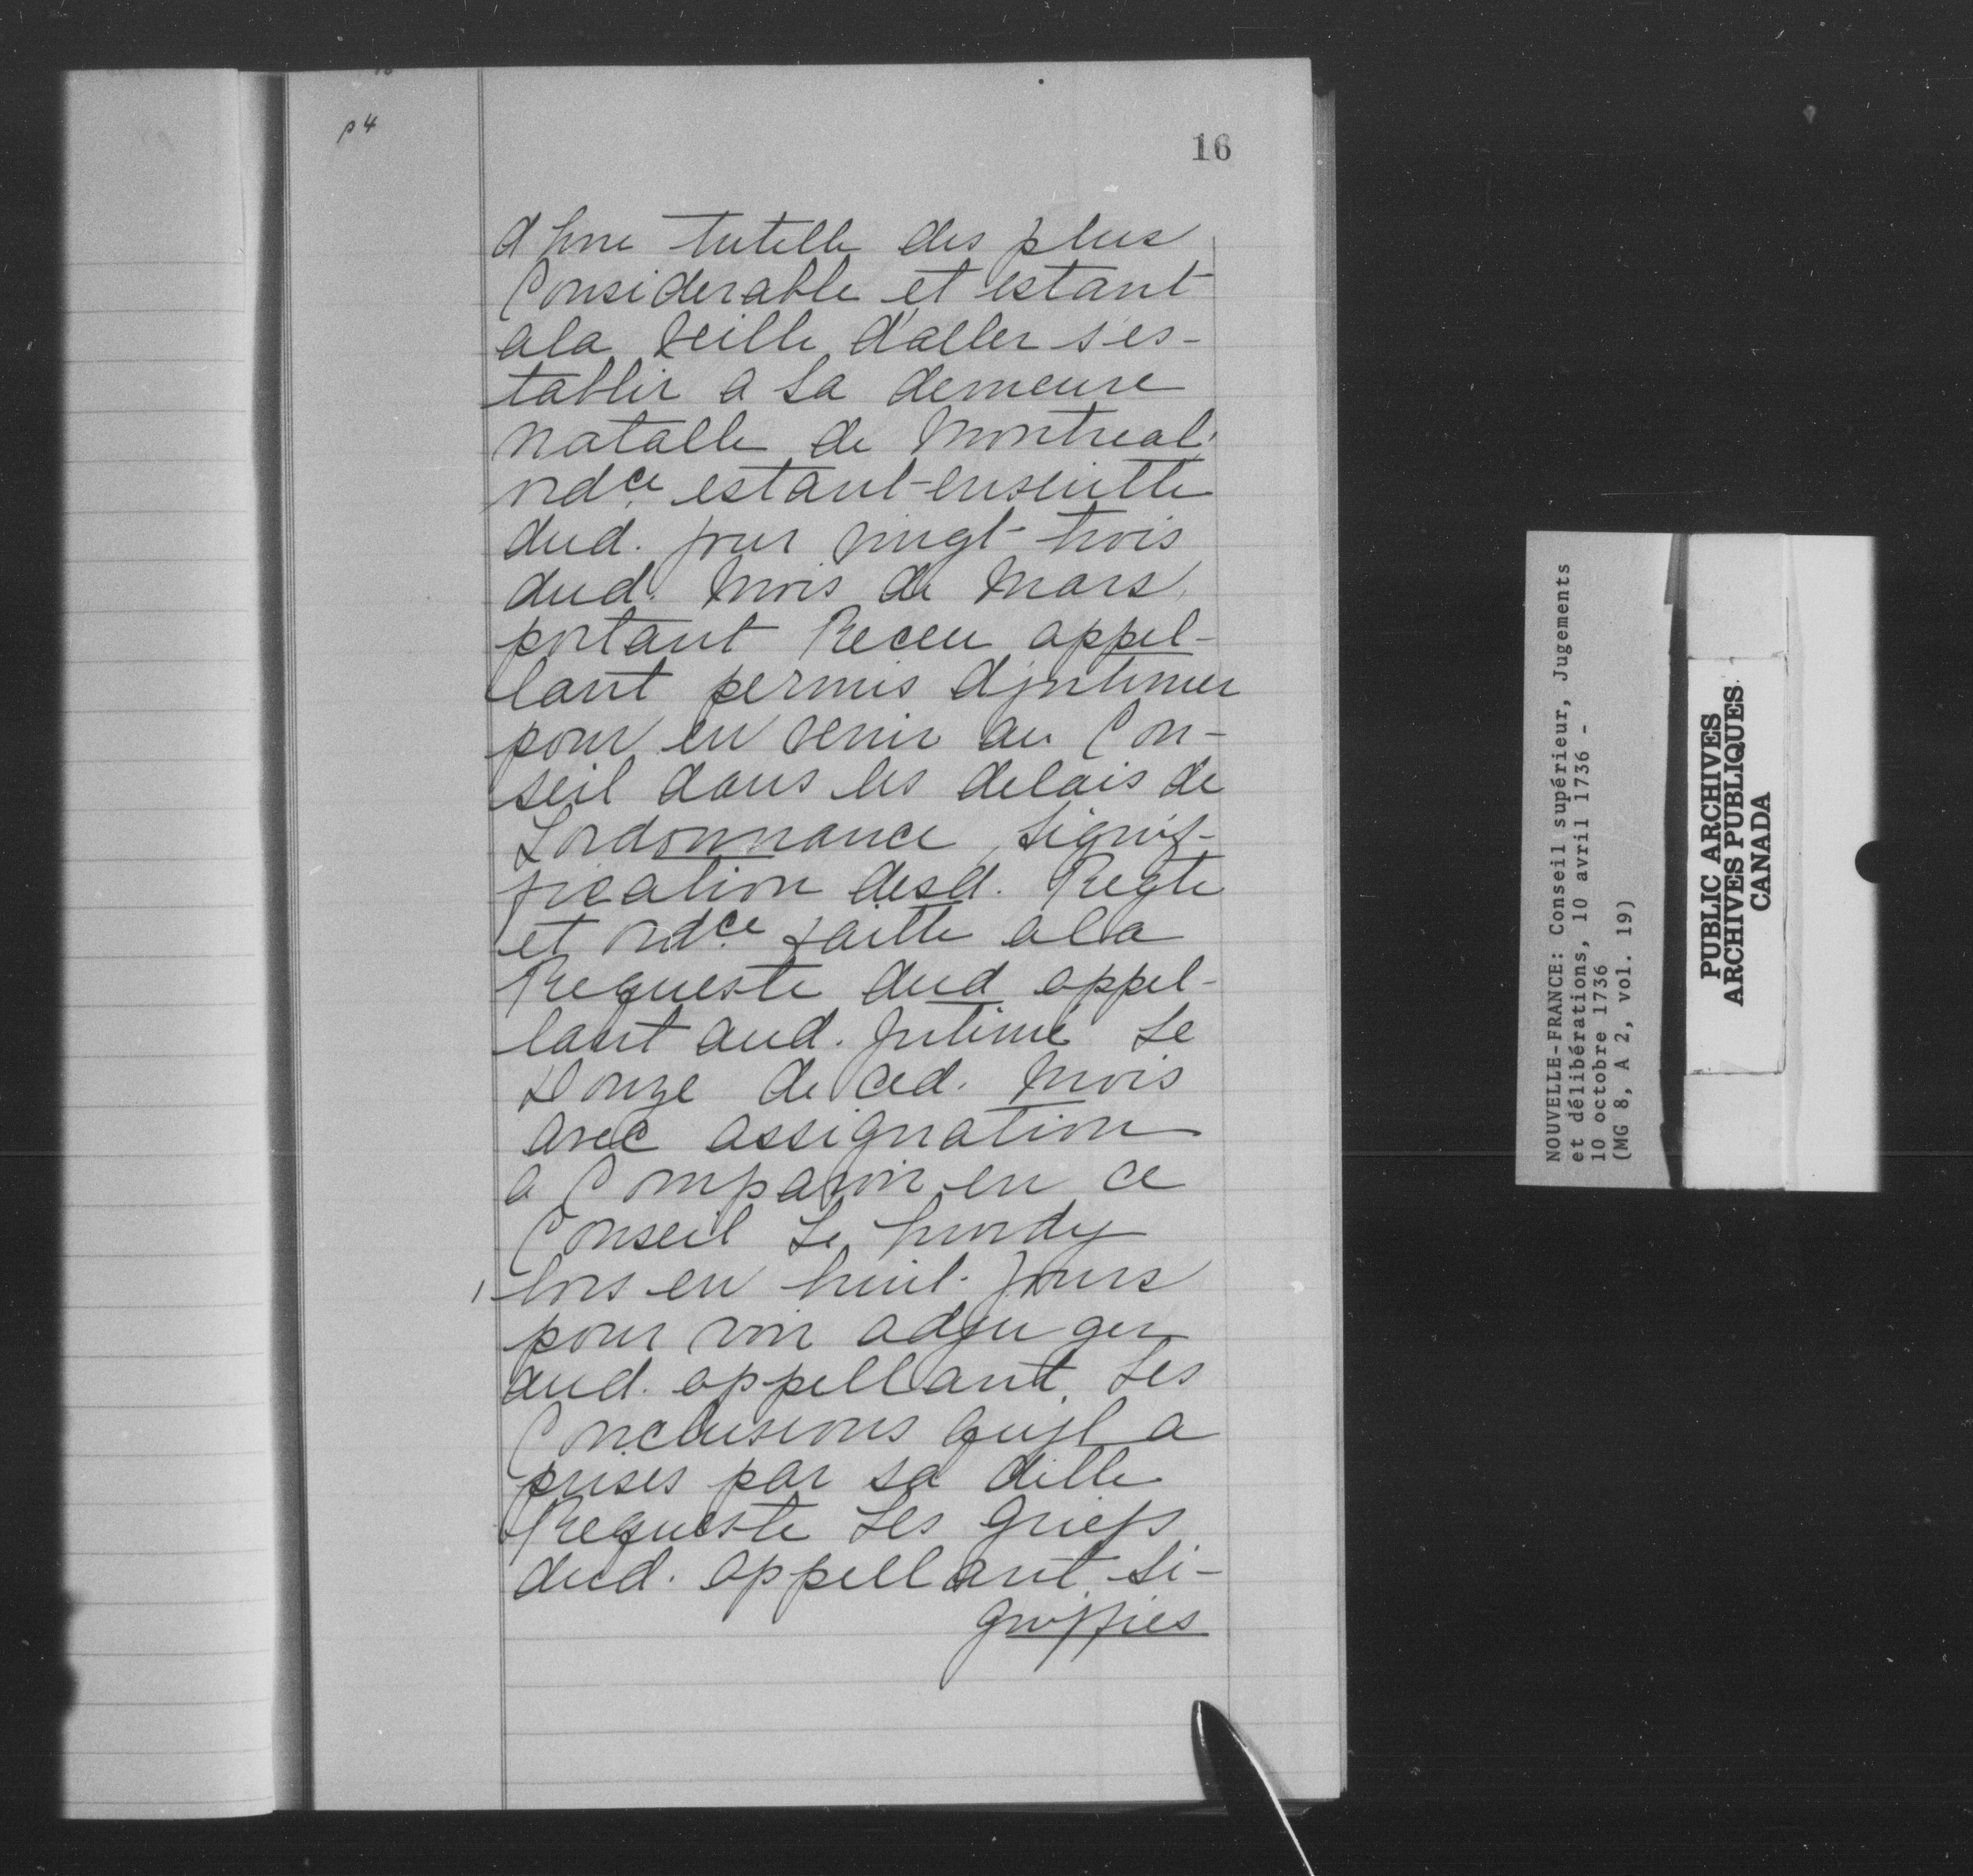 p 4
16
d'une tutelle des plus
Considerable et estant
ala veille d'aller s'es-
tablir a sa demeure
natalle de Montreal,
ordce estant-ensuitte
dud. jour vingt-trois
dud. Mois de Mars,
portant Receu appel-
lant permis djntimer
pour en venir au Con-
seil dans les delais de
Lordonnance, signif-
fication desd. Reqte
et ordce faitte ala
Requeste dud appel-
lant aud. Jntimé Le
Douze de ced. Mois
avec assignation
a Comparoir en ce
Conseil Le Lundy
lors en huit. Jours
pour voir adjuger
aud. appellant Les
Conclusions qujl a
prises par sa ditte
Requeste Les griefs
dud. appellant si-
gniffies
NOUVELLE-FRANCE: Conseil supérieur, Jugements
et délibérations, 10 avril 1736 -
10 octobre 1736
(MG 8, A 2, vol. 19)
PUBLIC ARCHIVES
ARCHIVES PUBLIQUES
CANADA